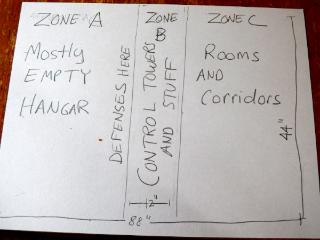 ZONE A
Mostly
EMPTY
HANGAR
DEFENSES HERE
ZONE
B
CONTROL TOWERS
AND STUFF
ZONE C
ROOMS
AND
CORRIDORS
44"
2"
88"